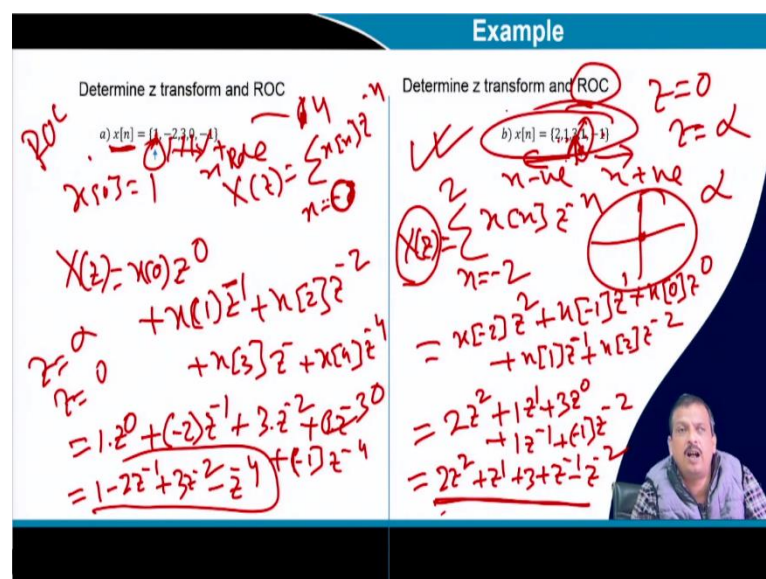 Example
Determine z transform and ROC
ROC
a) x[n] = {1, -2,3,0, -1}
x[0] = 1
X(z) = Σ x[n] z^-n
4
n=0
X(z) = x(0) z^0
+ x(1) z^-1 + x[2] z^-2
+ x[3] z^- + x[4] z^-4
z = α
z = 0
= 1.z^0 + (-2) z^-1 + 3.z^-2
+ (-1) z^-4
= 1 - 2z^-1 + 3z^-2 - z^-4
Determine z transform and ROC
z = 0
z = α
b) x[n] = {2,1,3,1, -1}
n -ve n +ve
X(z) = Σ x[n] z^-n
2
n=-2
α
= x[-2] z^2 + x[-1] z^1 + x[0] z^0
+ x[1] z^-1 + x[2] z^-2
= 2z^2 + 1z^1 + 3z^0
+ 1z^-1 + (-1) z^-2
= 2z^2 + z^1 + 3 + z^-1 - z^-2